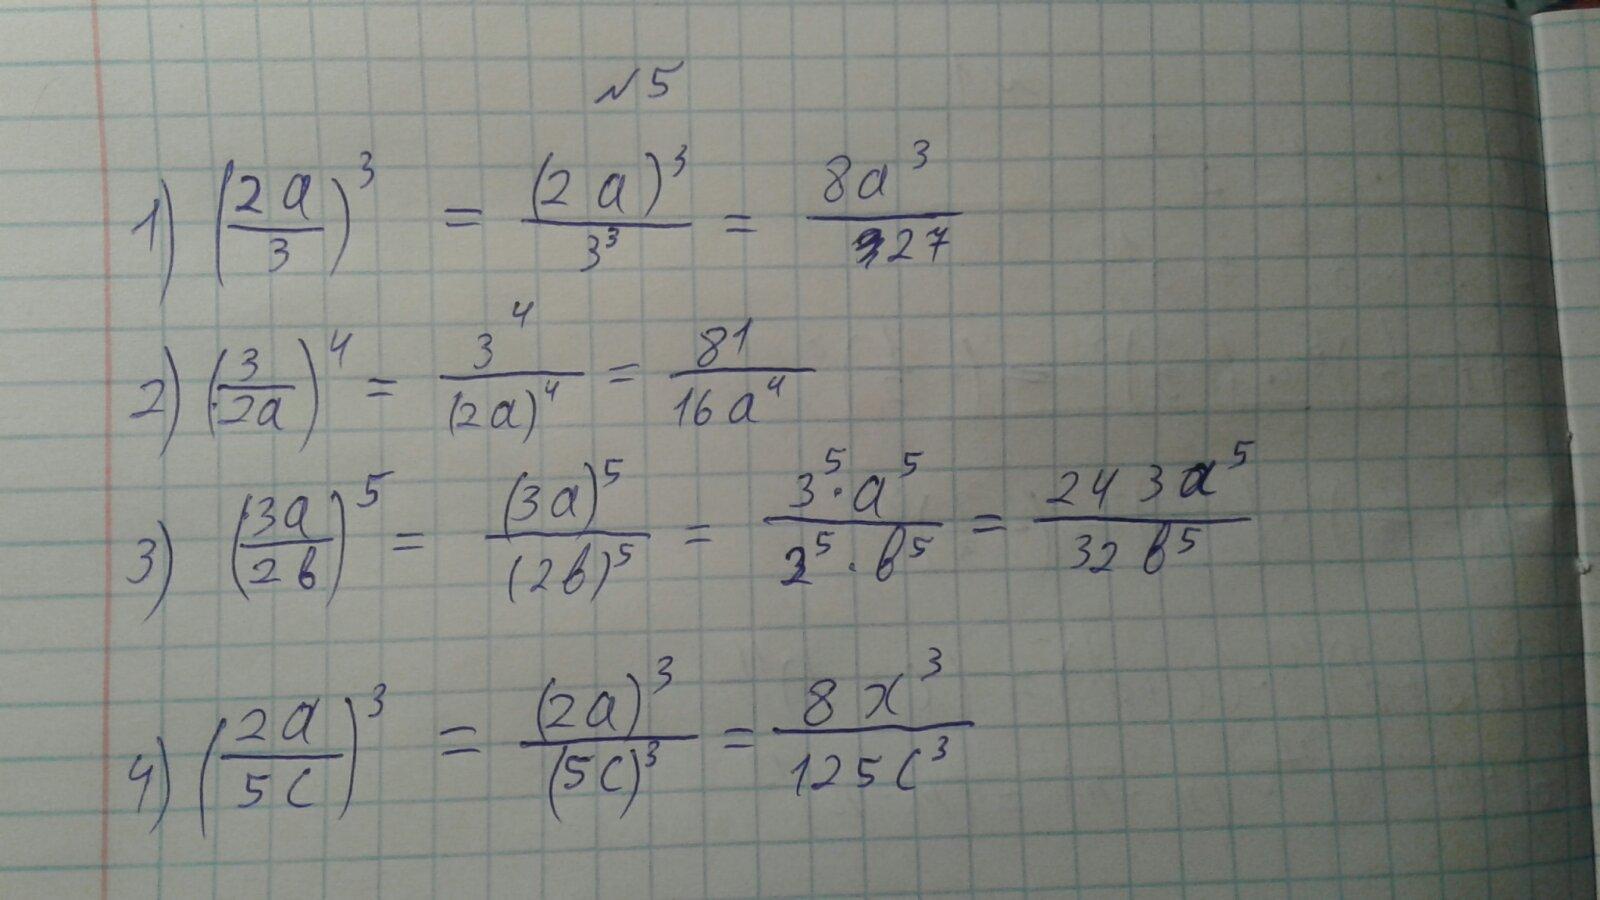 №5
1) (2a/3)³ = (2a)³/3³ = 8a³/27
2) (3/2a)⁴ = 3⁴/(2a)⁴ = 81/16a⁴
3) (3a/2b)⁵ = (3a)⁵/(2b)⁵ = 3⁵·a⁵/2⁵·b⁵ = 243a⁵/32b⁵
4) (2a/5c)³ = (2a)³/(5c)³ = 8x³/125c³